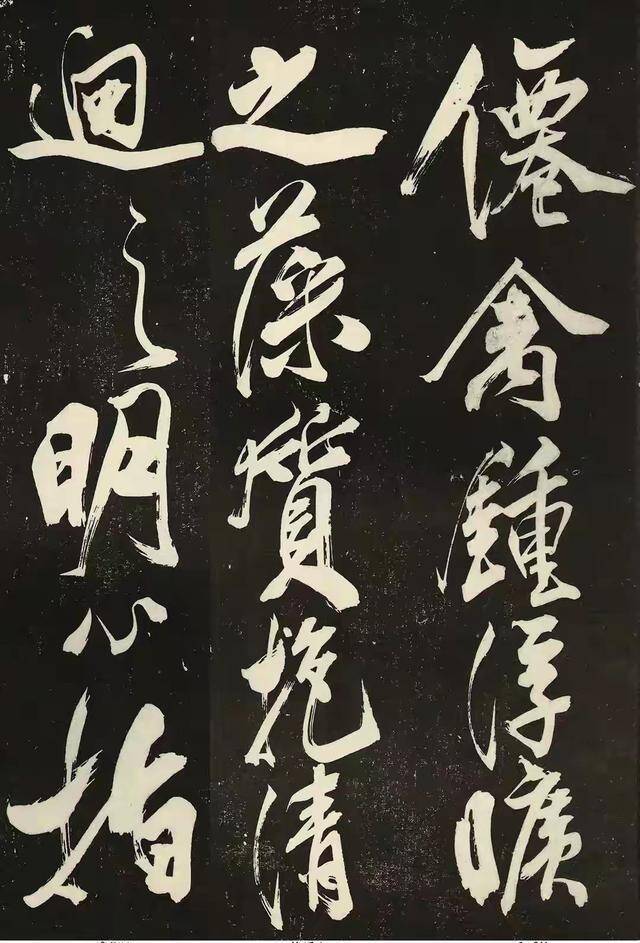 僊禽鍾浮曠
之藻質抱清
迥之明心指